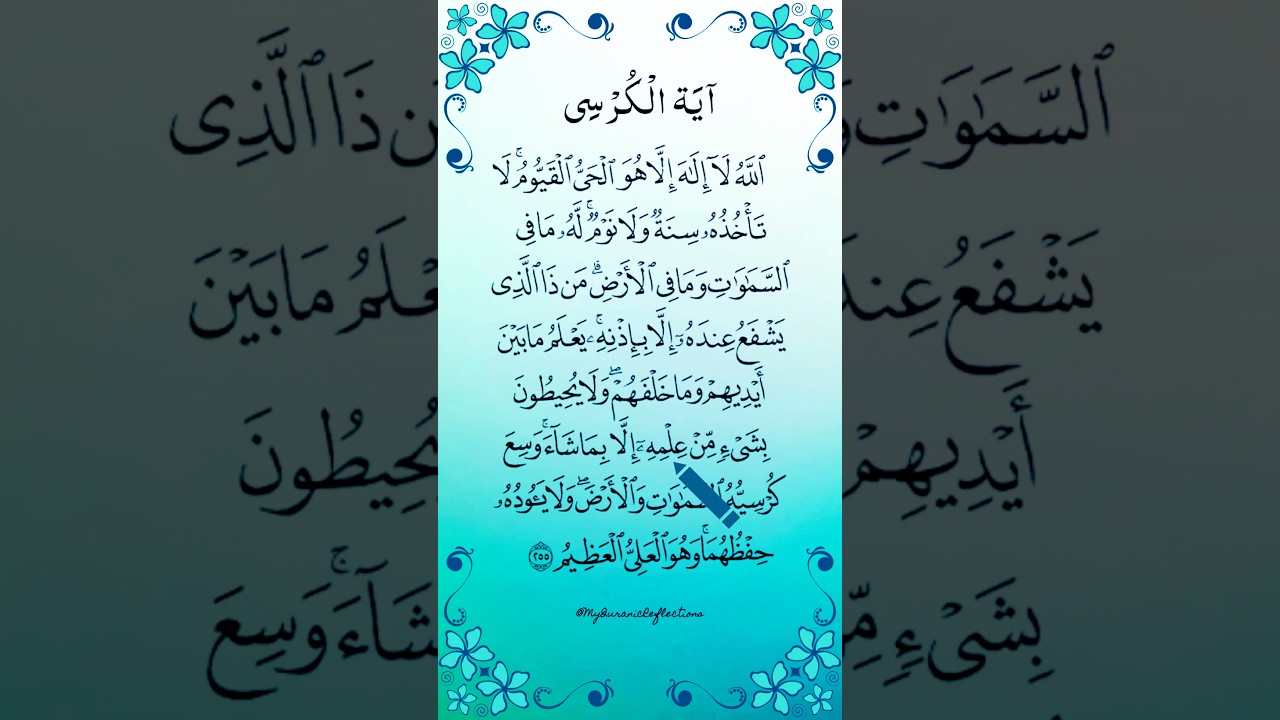 آيَة الْكُرْسِى
ٱللَّهُ لَآ إِلَـٰهَ إِلَّا هُوَ ٱلْحَىُّ ٱلْقَيُّومُ ۚ لَا
تَأْخُذُهُۥ سِنَةٌ وَلَا نَوْمٌ ۚ لَّهُۥ مَا فِى
ٱلسَّمَـٰوَٰتِ وَمَا فِى ٱلْأَرْضِ ۗ مَن ذَا ٱلَّذِى
يَشْفَعُ عِندَهُۥٓ إِلَّا بِإِذْنِهِۦ ۚ يَعْلَمُ مَا بَيْنَ
أَيْدِيهِمْ وَمَا خَلْفَهُمْ ۖ وَلَا يُحِيطُونَ
بِشَىْءٍ مِّنْ عِلْمِهِۦٓ إِلَّا بِمَا شَآءَ ۚ وَسِعَ
كُرْسِيُّهُ ٱلسَّمَـٰوَٰتِ وَٱلْأَرْضَ ۖ وَلَا يَـُٔودُهُۥ
حِفْظُهُمَا ۚ وَهُوَ ٱلْعَلِىُّ ٱلْعَظِيمُ ٢٥٥
@MyQuranicReflections